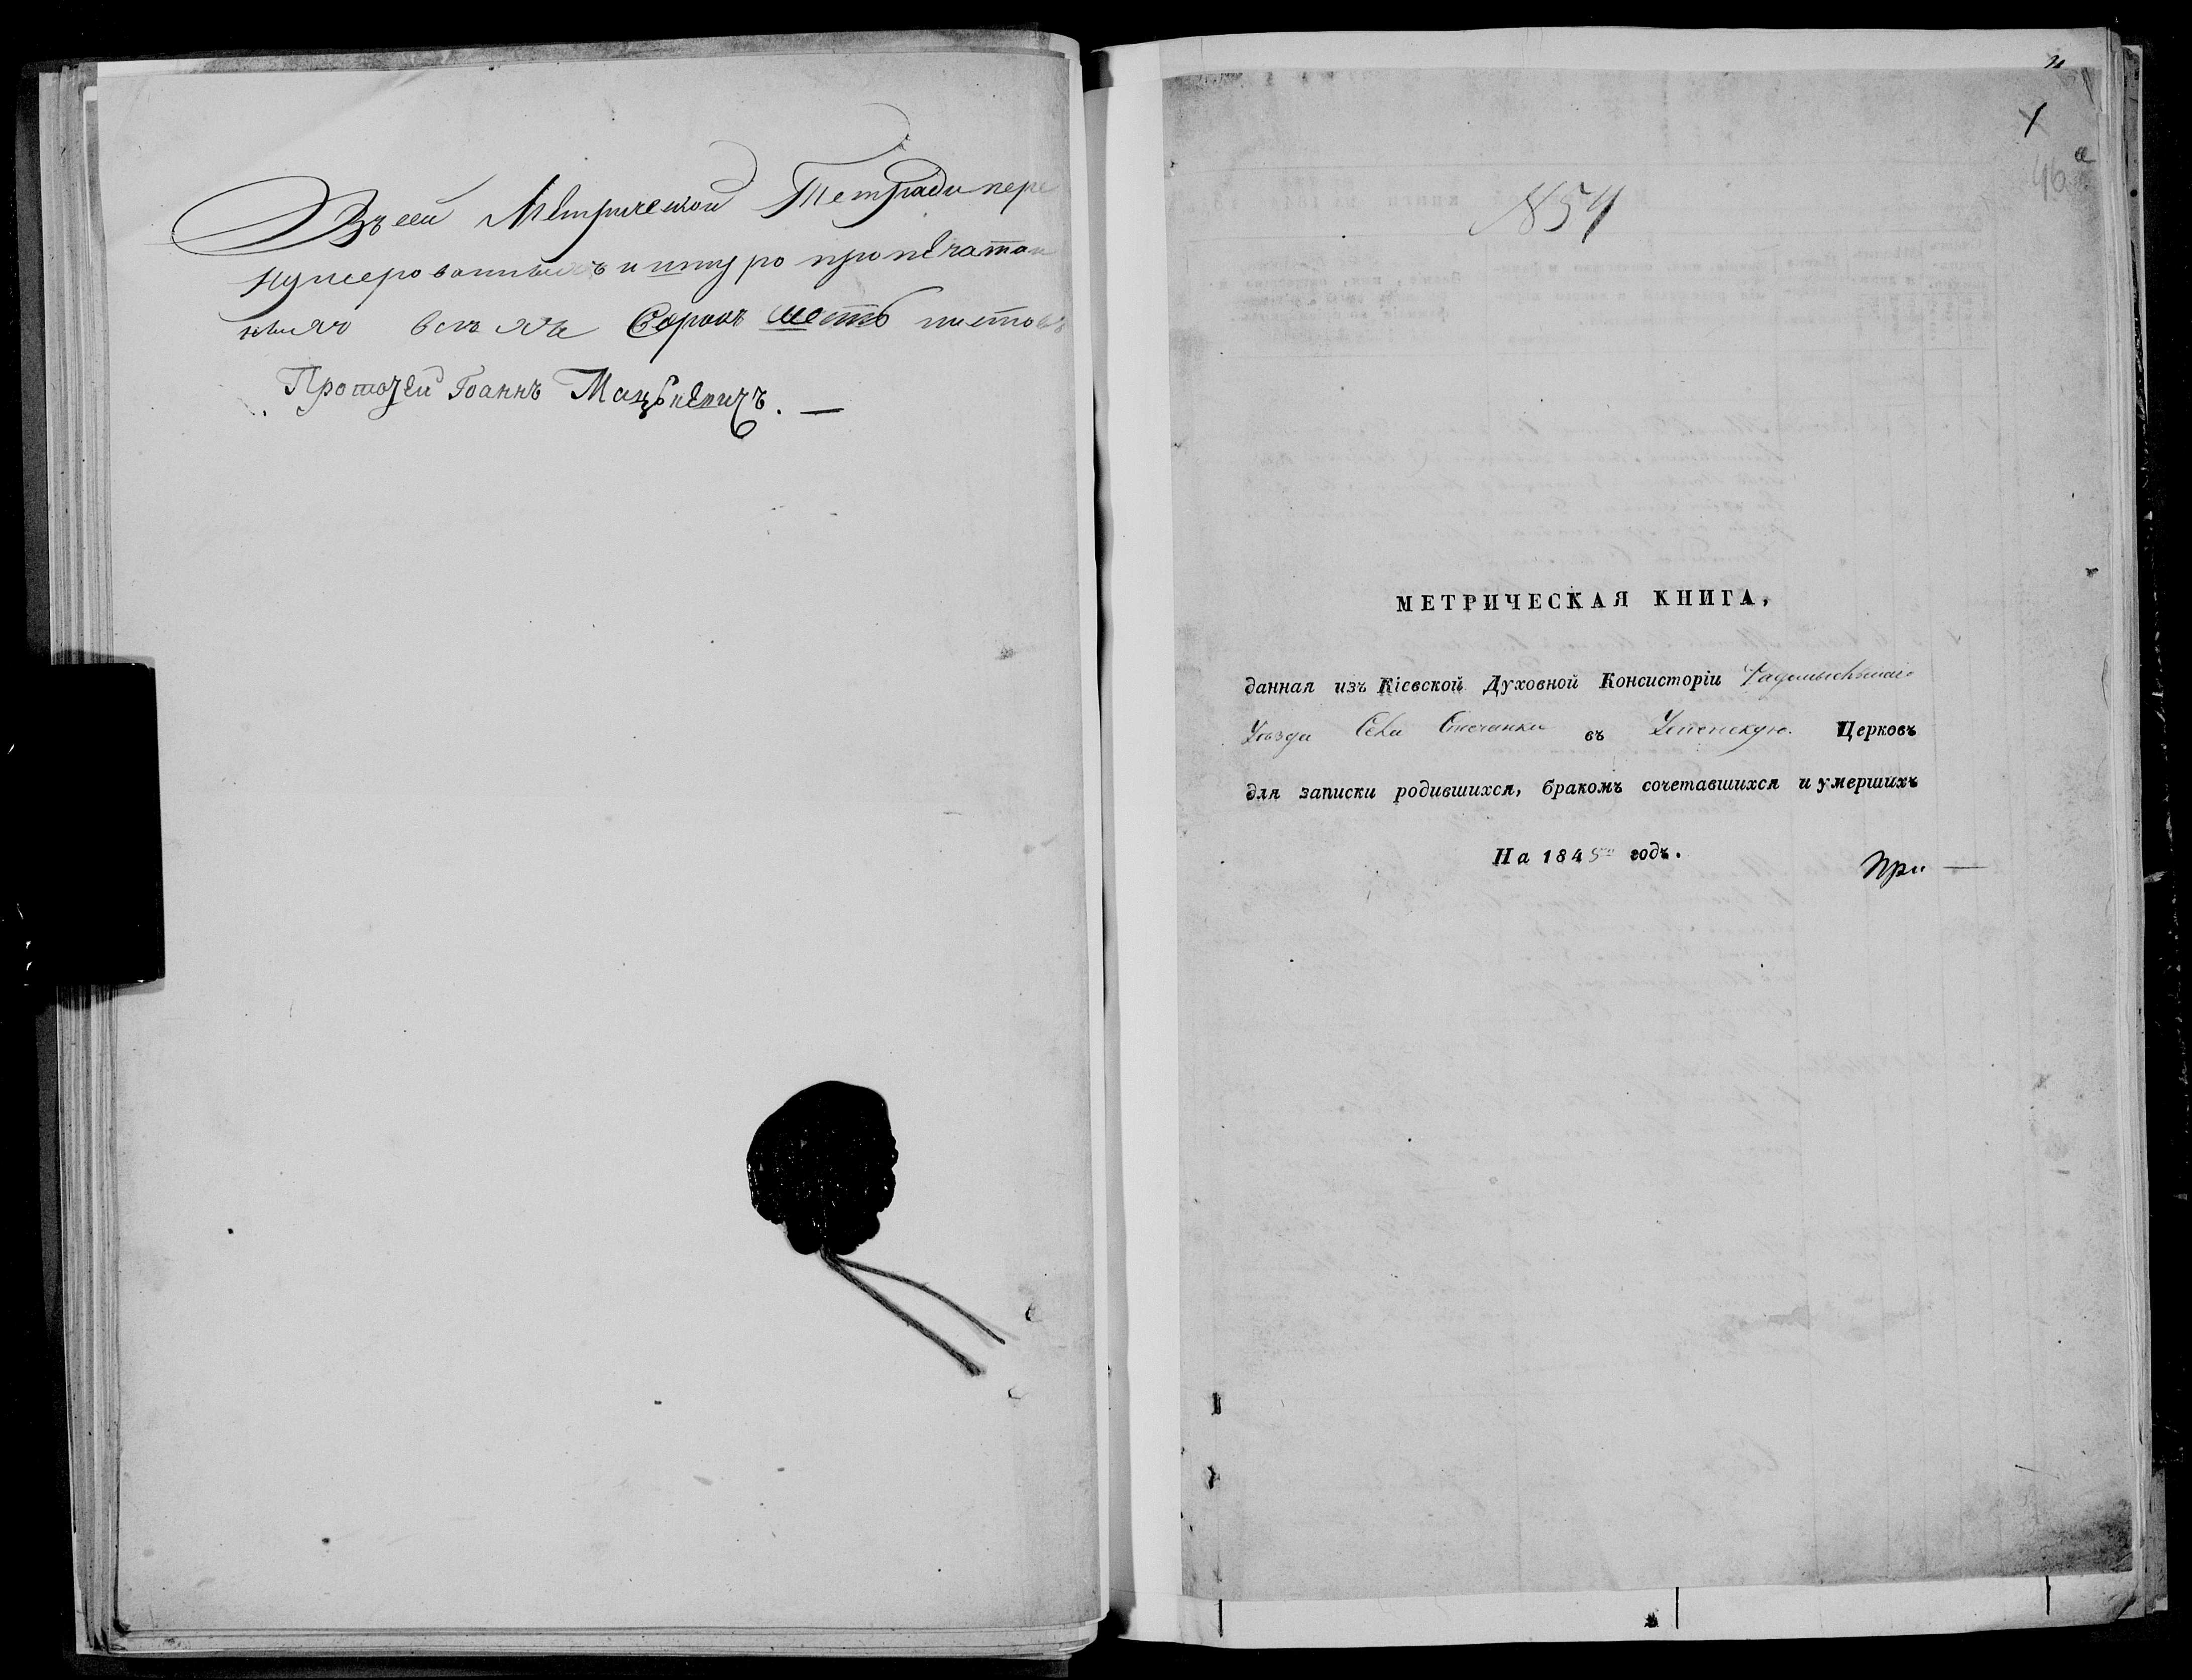 Въ сей Метрической Тетради пере
нумерованныхъ и шнуро пропечатан
ныхъ всѣхъ Сорокъ шесть листовъ
Протоіей Іоаннъ Мацькевичъ. —
1
46
№ 54
МЕТРИЧЕСКАЯ КНИГА,
данная изъ Кіевской Духовной Консисторіи Радомысльскаго
Уѣзда Села Ставичанки въ Успенскую Церковь
для записки родившихся, бракомъ сочетавшихся и умершихъ
На 1845 годъ.
При —